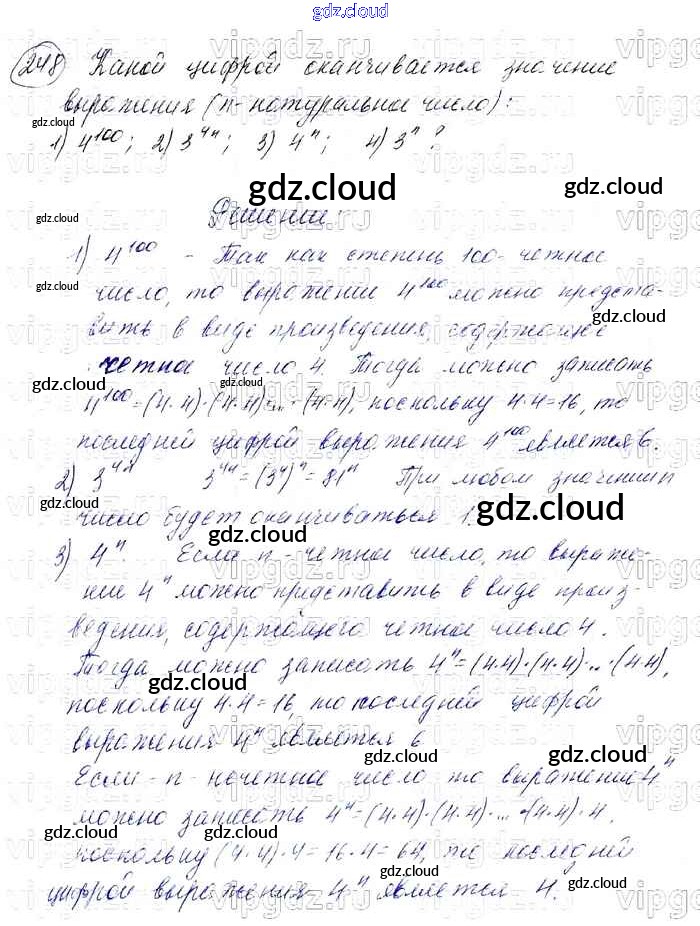 gdz.cloud
248 Какой цифрой оканчивается значение
выражения (n - натуральное число):
1) 4^100; 2) 3^4n; 3) 4^n; 4) 3^n ?
Решение:
1) 4^100 - Так как степень 100 - четное
число, то выражение 4^100 можно предста-
вить в виде произведения, содержащее
четное число 4. Тогда можно записать
4^100 = (4·4)·(4·4)·...·(4·4), поскольку 4·4=16, то
последней цифрой выражения 4^100 является 6.
2) 3^4n 3^4n = (3^4)^n = 81^n При любом значении n
число будет оканчиваться 1.
3) 4^n. Если n - четное число, то выраже-
ние 4^n можно представить в виде произ-
ведения, содержащего четное число 4.
Тогда можно записать 4^n = (4·4)·(4·4)·...·(4·4),
поскольку 4·4=16, то последней цифрой
выражения 4^n является 6
Если - n - нечетное число то выражение 4^n
можно записать 4^n = (4·4)·(4·4)·...·(4·4)·4.
поскольку (4·4)·4 = 16·4 = 64, то последней
цифрой выражения 4^n является 4.